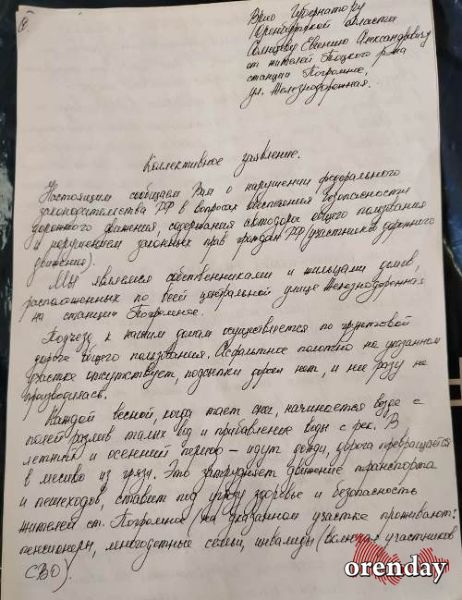 Врио Губернатору
Оренбургской области
Солнцеву Евгению Александровичу
от жителей Тоцкого р-на
станции Погромное,
ул. Железнодорожная.
Коллективное заявление.
Настоящим сообщаем Вам о нарушении федерального
законодательства РФ в вопросах обеспечения безопасности
дорожного движения, содержания автодорог общего пользования
и нарушением законных прав граждан РФ (участников дорожного
движения).
Мы являемся собственниками и жильцами домов,
расположенных по всей центральной улице Железнодорожная
на станции Погромное.
Подъезд к нашим домам осуществляется по грунтовой
дороге общего пользования. Асфальтное полотно на указанном
участке отсутствует, подсыпки дороги нет, и ни разу не
производилась.
Каждой весной когда тает снег, начинается везде с
полей разлив талых вод и прибавление воды с рек. В
летний и осенний период - идут дожди, дорога превращается
в месиво из грязи. Это затрудняет движение транспорта
и пешеходов, ставит под угрозу здоровье и безопасность
жителей ст. Погромное (на указанном участке проживают:
пенсионеры, многодетные семьи, инвалиды (включая участников
СВО).
orenday